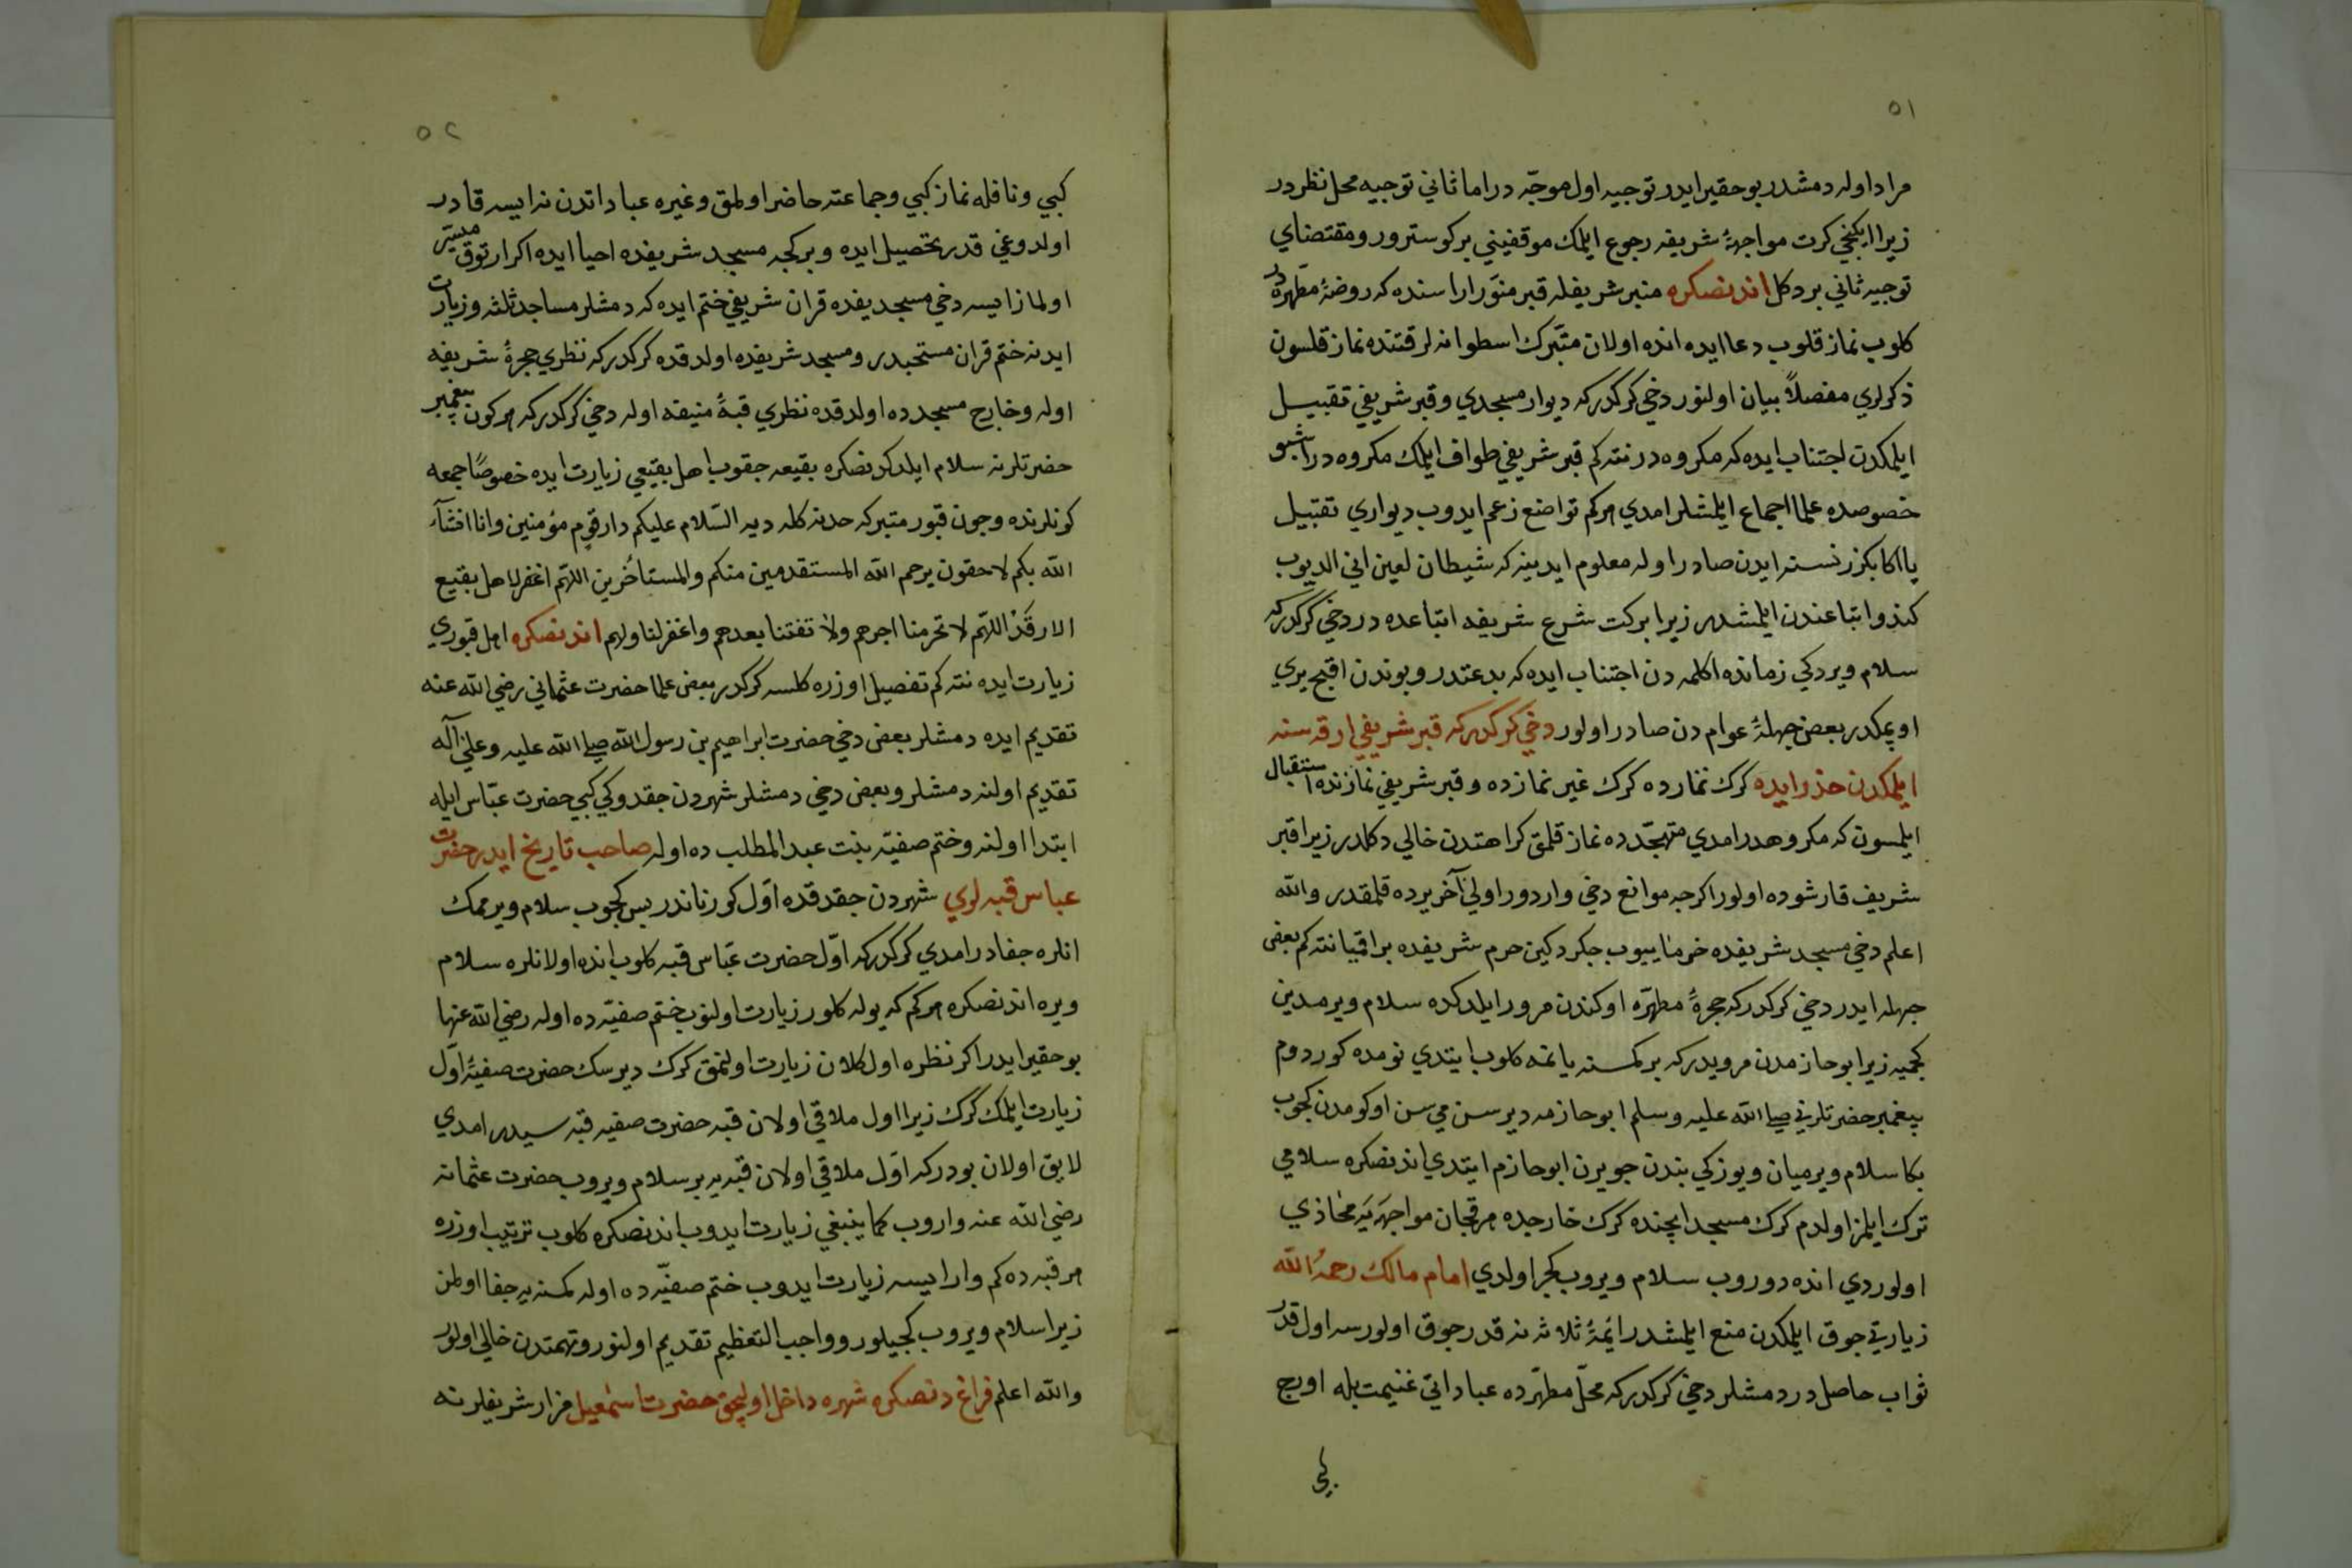 ٥١
مراد اوله دمشدر بو حقير ايدر توجيه اول موجّه در اما ثاني توجيه محل نظر در
زيرا ايكنجي كرت مواجهۀ شريفه رجوع ايلمك موقفيني بر كوسترور و مقتضاي
توجيه ثاني بر دكل اندنصكره منبر شريفله قبر منوّر اراسنده كه روضۀ مطهره در
كلوب نماز قلوب دعا ايده انده اولان متبّرك اسطوانه لر قتنده نماز قلسون
ذكرلري مفصلاً بيان اولنور دخي كركدركه ديوار مسجدي و قبر شريفي تقبيل
ايلمكدن اجتناب ايده كه مكروه در نته كم قبر شريفي طواف ايلمك مكروه در اشبو
خصوصده علما اجماع ايلمشلر امدي هر كم تواضع زعم ايدوب ديواري تقبيل
يا اكا بكزر نسنه ايدن صادر اوله معلوم ايدينه كه شيطان لعين اني الديوب
كندو اتباعندن ايلمشدر زيرا بركت شرع شريفه اتباعده در دخي كركدركه
سلام ويردكي زمانده اكلمه دن اجتناب ايده كه بدعتدر و بوندن اقبح يري
اوپمكدر بعض جهلۀ عوام دن صادر اولور دخي كركدركه قبر شريفي ارقه سنه
ايلمكدن حذر ايده كرك نمازده كرك غير نمازده و قبر شريفي نمازنده استقبال
ايلمسون كه مكروهدر امدي متهجّد ده نماز قلمق كراهتدن خالي دكلدر زيرا قبر
شريف قارشوده اولور اكرچه موانع دخي واردور اولي آخر يرده قلمقدر والله
اعلم دخي مسجد شريفده خرما ييوب چكردكين حرم شريفده براقميا نته كم بعض
جهله ايدر دخي كركدركه حجرۀ مطهرّه اوكندن مرور ايلدكده سلام ويرمدين
كچميه زيرا ابو حازمدن مرويدركه بر كمسنه يانمه كلوب ايتدي نومده كوردوم
پيغمبر حضرتلريني صلي الله عليه وسلم ابو حازمه دير سن مي سن اوكومدن كچوب
بكا سلام ويرميان و يوزكي بندن چويرن ابو حازم ايتدي اندنصكره سلامي
ترك ايلمز اولدم كرك مسجد ايچنده كرك خارجده هر قچان مواجهه يه محاذي
اولوردي انده دوروب سلام ويروب كچر اولدي امام مالك رحمه الله
زيارتي چوق ايلمكدن منع ايلمشدر ائمۀ ثلاثه نه قدر چوق اولورسه اول قدر
ثواب حاصل در دمشلر دخي كركدركه محلّ مطهّرده عباداتي غنيمت بله اوروج
كبي
٥٢
كبي و نافله نماز كبي و جماعته حاضر اولمق و غيره عباداتدن نه ايسه قادر
اولدوغي قدر تحصيل ايده و بر كجه مسجد شريفده احيا ايده اكر ارتوق ميسّر
اولماز ايسه دخي مسجد يفده قران شريفي ختم ايده كه دمشلر مساجد ثلثه و زيارت
ايدنه ختم قران مستحبدر و مسجد شريفده اولدقده كركدركه نظري حجرۀ شريفه
اوله و خارج مسجدده اولدقده نظري قبۀ منيفه اوله دخي كركدركه هر كون پيغمبر
حضرتلرينه سلام ايلدكدنصكره بقيعه چقوب اهل بقيعي زيارت ايده خصوصاً جمعه
كونلرنده و چون قبور متبركه حدنه كله ديه السّلام عليكم دار قوم مؤمنين وانا انشآء
الله بكم لاحقون يرحم الله المستقدمين منكم والمستأخرين اللّهم اغفر لاهل بقيع
الارقد اللّهم لا تحرمنا اجرهم ولا تفتنا بعدهم واغفر لنا ولهم اندنصكره اهل قبوري
زيارت ايده نته كم تفصيل اوزره كلسه كركدر بعض علما حضرت عثماني رضي الله عنه
تقديم ايده دمشلر بعض دخي حضرت ابراهيم بن رسول الله صلي الله عليه وعلي آله
تقديم اولنه دمشلر و بعض دخي دمشلر شهردن چقدوكي كبي حضرت عبّاس ايله
ابتدا اولنه و ختم صفيّه بنت عبد المطلب ده اوله صاحب تاريخ ايدر حضرت
عباس قبه لري شهردن چقدقده اوّل كورناندر پس كچوب سلام ويرممك
انلره جفادر امدي كركدركه اوّل حضرت عبّاس قبه كلوب انده اولانلره سلام
ويره اندنصكره هر كم كه يوله كلور زيارت اولنوب ختم صفيّه ده اوله رضي الله عنها
بو حقير ايدر اكر نظره اول كلان زيارت اولنمق كرك ديرسك حضرت صفيۀ اوّل
زيارت ايلمك كرك زيرا اول ملاقي اولان قبه حضرت صفيه قبه سيدر امدي
لايق اولان بودركه اوّل ملاقي اولان قبه يه بر سلام ويروب حضرت عثمانه
رضي الله عنه واروب كما ينبغي زيارت ايدوب اندنصكره كلوب ترتيب اوزره
هر قبه ده كم وار ايسه زيارت ايدوب ختم صفيّه ده اوله كمسنه يه جفا اولمز
زيرا سلام ويروب كچيلور و واجب التعظيم تقديم اولنور و تهمتدن خالي اولور
والله اعلم فراغ دنصكره شهره داخل اوليجق حضرت اسمعيل مزار شريفلرينه